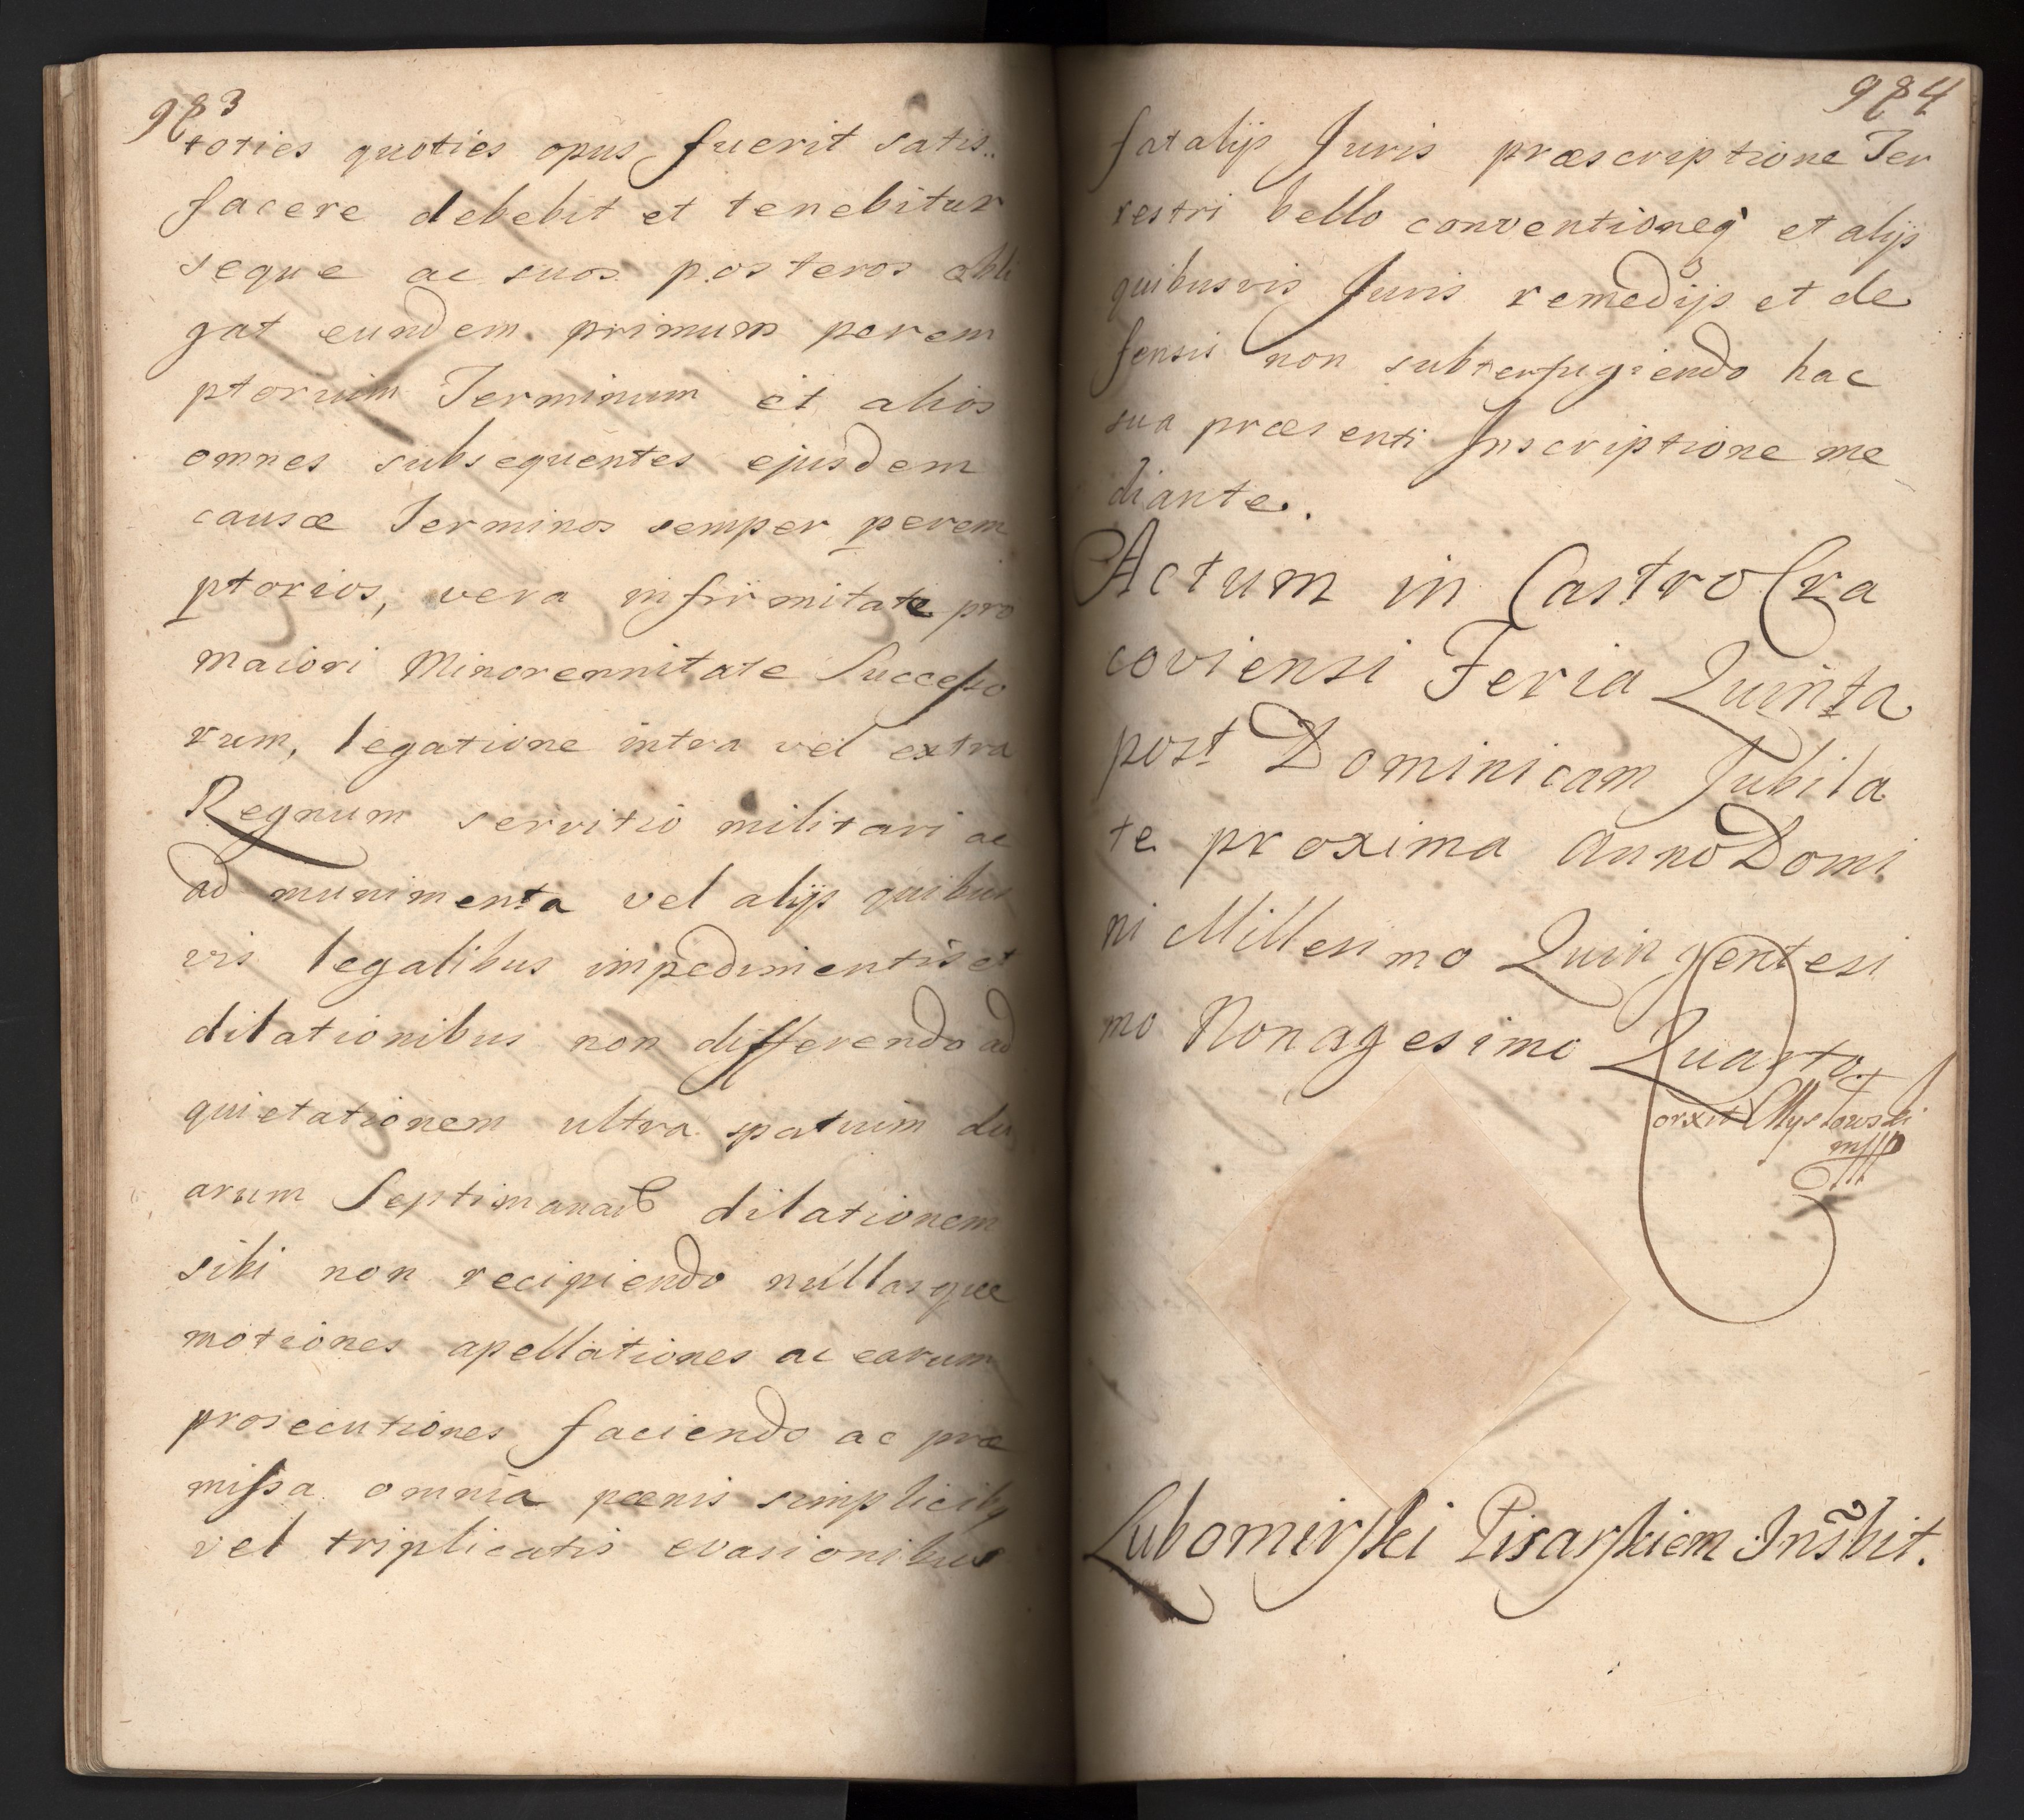 983
toties quoties opus fuerit satis..
facere debebit et tenebitur
seque ac suos posteros obli
gat eundem primum perem
ptorium Terminum et alios
omnes subsequentes ejusdem
causæ Terminos semper perem
ptorios, vera infirmitate pro
maiori Minorennitate Successo
rum, legatione intra vel extra
Regnum servitio militari ac
ad munimenta vel alijs quibus
vis legalibus impedimentis et
dilationibus non differendo ad
quietationem ultra spatium du
arum Septimanar dilationem
sibi non recipiendo nullasque
motiones apellationes ac earum
prosecutiones faciendo ac præ
missa omnia pœnis simplicibq
vel triplicatis evasionibus
984
fatalijs Juris præscriptione Ter
restri bello conventioneq et alijs
quibusvis Juris remedijs et de
fensis non subterfugiendo hac
sua præsenti Inscriptione me
diante.
Actum in Castro Cra
coviensi Feria Quinta
post Dominicam Jubila
te proxima anno Domi
ni Millesimo Quingentesi
mo Nonagesimo Quarto.
Mysłowski
mpp
Lubomirski Pisarskiem Insbit.